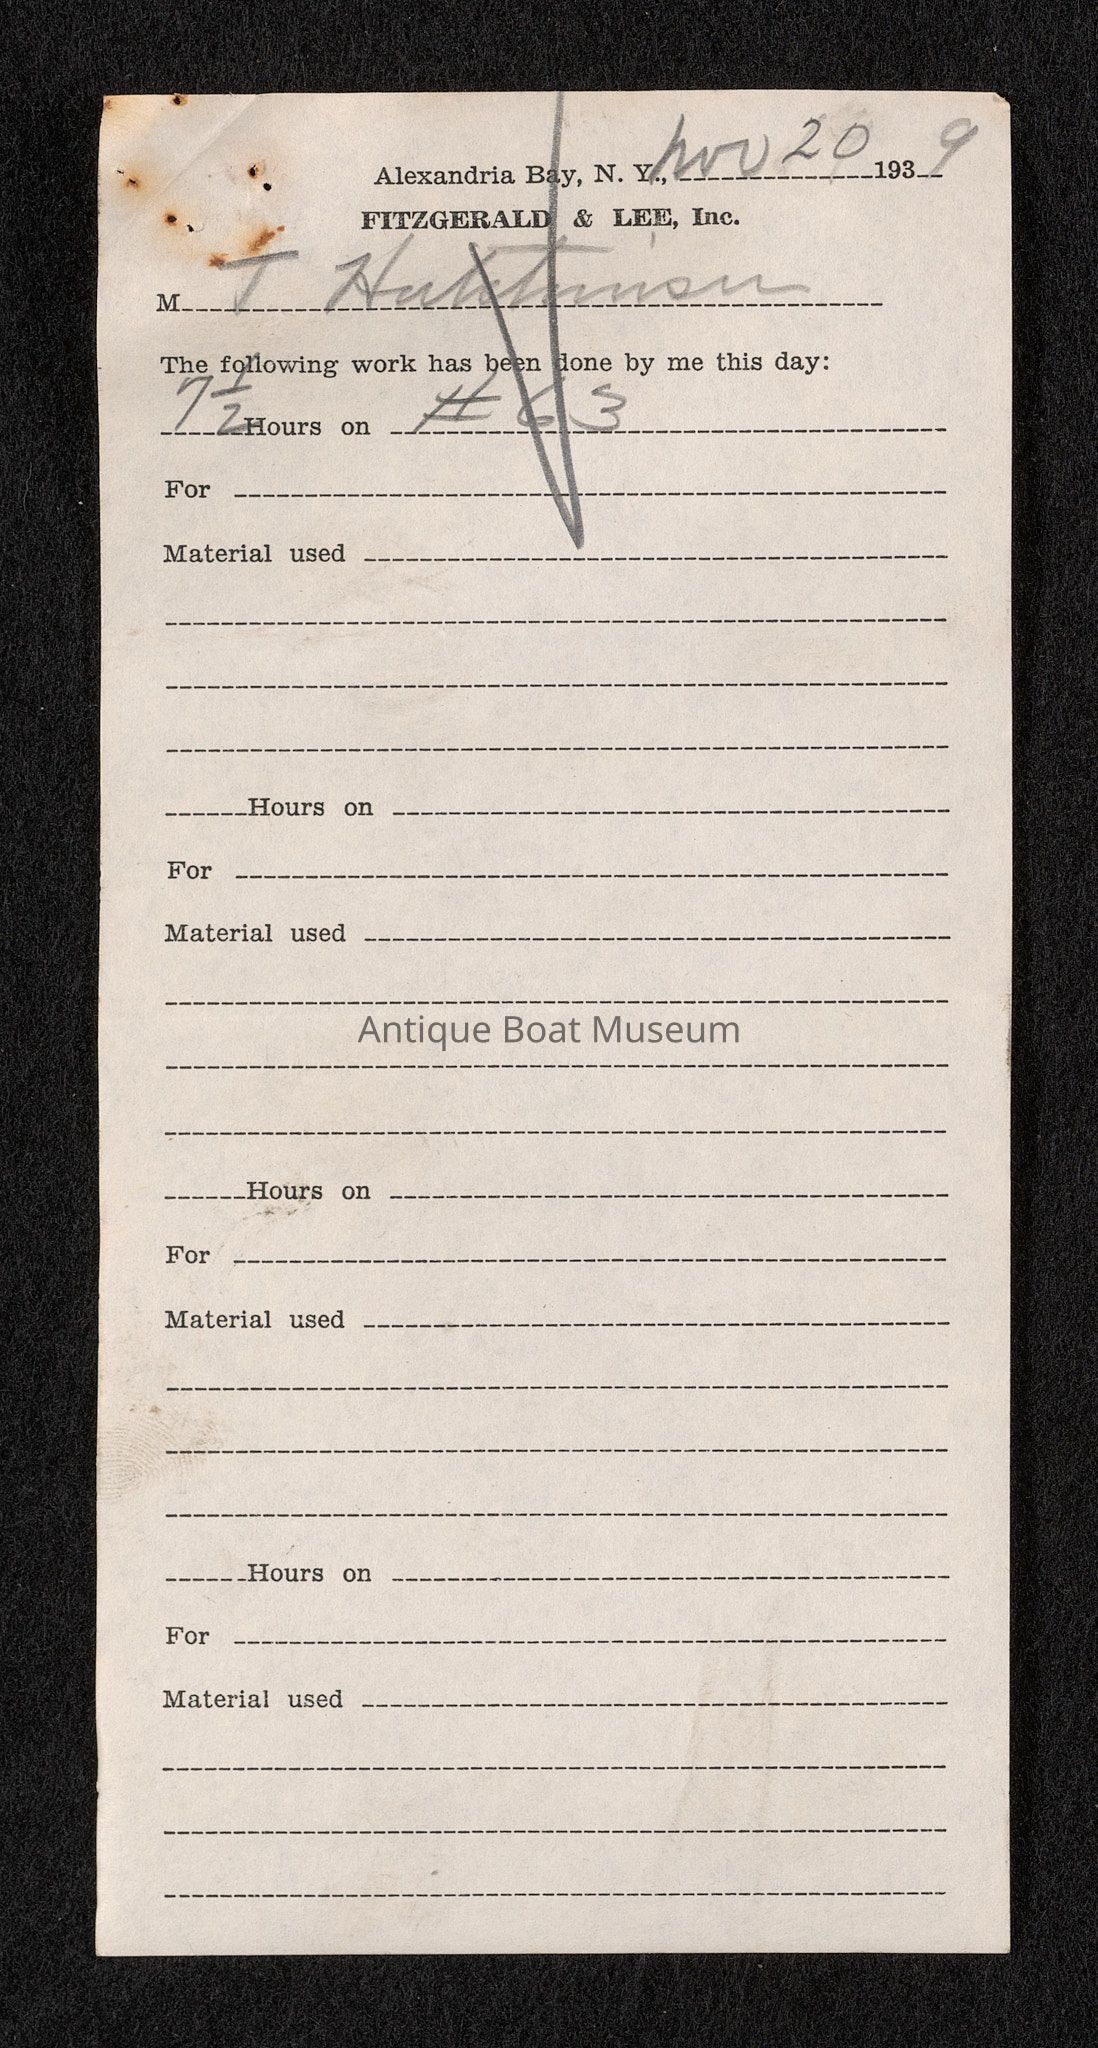 Alexandria Bay, N. Y., Nov 20 1939
FITZGERALD & LEE, Inc.
M T Hutchinson
The following work has been done by me this day:
7 1/2 Hours on # 63
For
Material used
Hours on
For
Material used
Antique Boat Museum
Hours on
For
Material used
Hours on
For
Material used